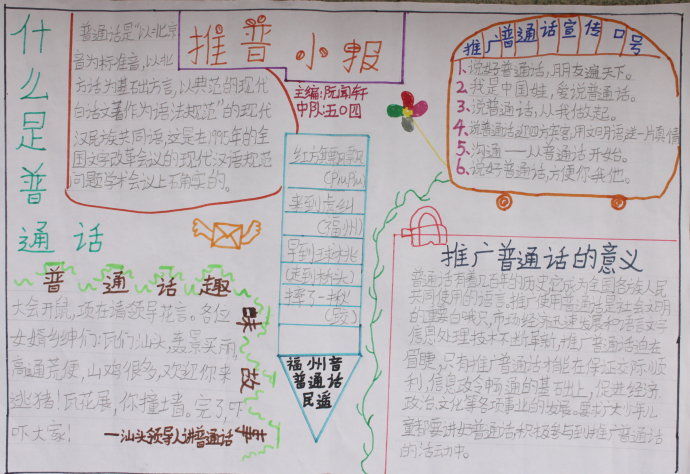 什么是普通话
普通话是“以北京
音为标准音,以北
方话为基础方言,以典范的现代
白话文著作为语法规范”的现代
汉民族共同语,这是在1955年的全
国文字改革会议和现代汉语规范
问题学术会议上确定的。
推普小报
主编:阮闻轩
中队:五〇四
推广普通话宣传口号
1、说好普通话,朋友遍天下。
2、我是中国娃,爱说普通话。
3、说普通话,从我做起。
4、说普通话,迎四方宾客,用文明语送一片真情
5、沟通——从普通话开始。
6、说好普通话,方便你我他。
来到
(福州)
早到球桃
(走到桥头)
摔了一
福州音
普通话
民谣
普通话趣味故事
大会开鼠,项在请领导花言。各位
女婿乡绅们:瓦们汕头,轰景买雨,
高通荒便,山鸡很多,欢迎你来
逃猪!瓦花展,你撞墙。完了,吓
吓大家!
——汕头领导人讲普通话
推广普通话的意义
普通话有着几百年的历史,它成为全国各族人民
共同使用的语言。推广使用普通话是社会文明
的重要标识,市场经济迅速发展和语言文字
信息处理技术不断革新,推广普通话迫在
眉睫,只有推广普通话才能在保证交际顺
利,信息交流畅通的基础上,促进经济
政治、文化等各项事业的发展。要求广大少年儿
童都要讲好普通话,积极参与到推广普通话
的活动中。